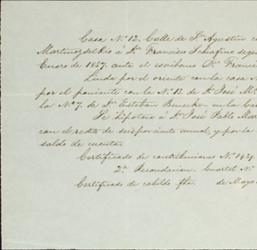 Casa N.º 12. Calle de Sn Agustin
Martinez del Rio á Dn Francisco Serafino
Enero de 1857. ante el escribano Dn Franci
Linda por el oriente con la casa
por el poniente con la N.º 13. de Dn José M.
la N.º 7. de Dn Esteban
Se hipoteca á Dn José Pablo Mar
con el redito de seis por ciento anual, y por la
saldo de cuenta.
Certificado de contribuciones N.º
2.ª Recaudacion. Cuartel N.º
Certificado de cabildo fha de Mayo